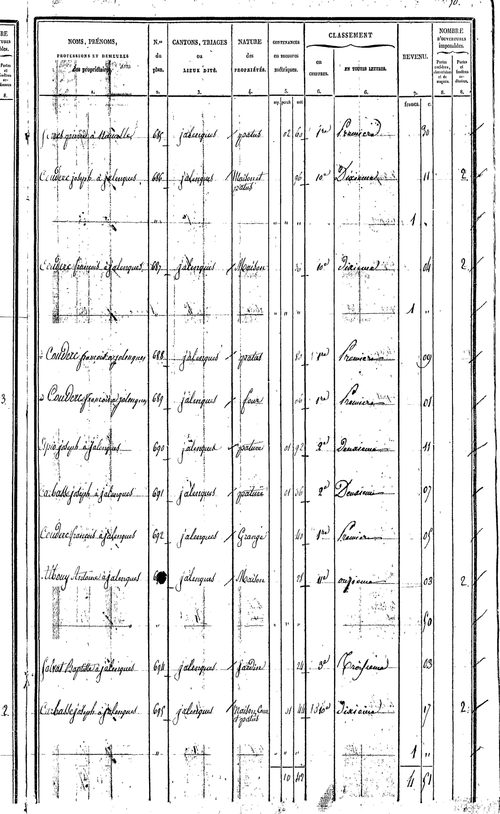 NOMS, PRÉNOMS,
PROFESSIONS ET DEMEURES
des propriétaires.
1.
N.os
du
plan.
2.
CANTONS, TRIAGES
OU
LIEUX DITS.
3.
NATURE
DES
PROPRIÉTÉS.
4.
CONTENANCES
EN MESURES
métriques.
5.
CLASSEMENT
EN
CHIFFRES.
EN TOUTES LETTRES.
6.
REVENU.
7.
NOMBRE
D'OUVERTURES
imposables.
8.
8.
arp. perch. mèt.
francs. c.
685 jalenques patus 02 60 1re Première 30
Couderc joseph à jalenques 686 jalenques Maison et patus 96 10e Dixieme 11 2
" " " " 1 "
Couderc françois à jalenques 687 jalenques Maison 10e dixieme 04 2
" " " 1 "
Couderc françois à jalenques 688 jalenques patus 1re Premiere 09
Couderc françois à jalenques 689 jalenques four 06 1re Premiere 01
joseph à jalenques 690 jalenques pature 01 92 2e Deuxieme 11
Carbasse joseph à jalenques 691 jalenques pature 01 36 2e Deuxieme 07
Couderc françois à jalenques 692 jalenques Grange 40 1re Premiere 05
Antoine à jalenques jalenques Maison 11e onzieme 03 2
" " " " 50
Baptiste à jalenques 694 jalenques jardin 24 3e Troisieme 03
Carbasse joseph à jalenques 695 jalenques Maison Cour et patus 01 44 10e dixieme 17 2
" " " " 1 "
10 42 4 51
3
2.